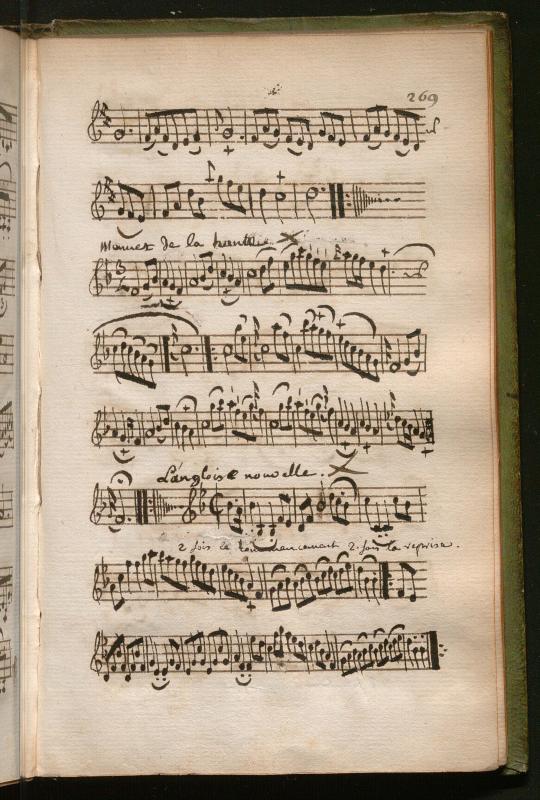 269
menuet de la
L'angloise nouvelle.
2 fois le commencement 2 fois la reprise.